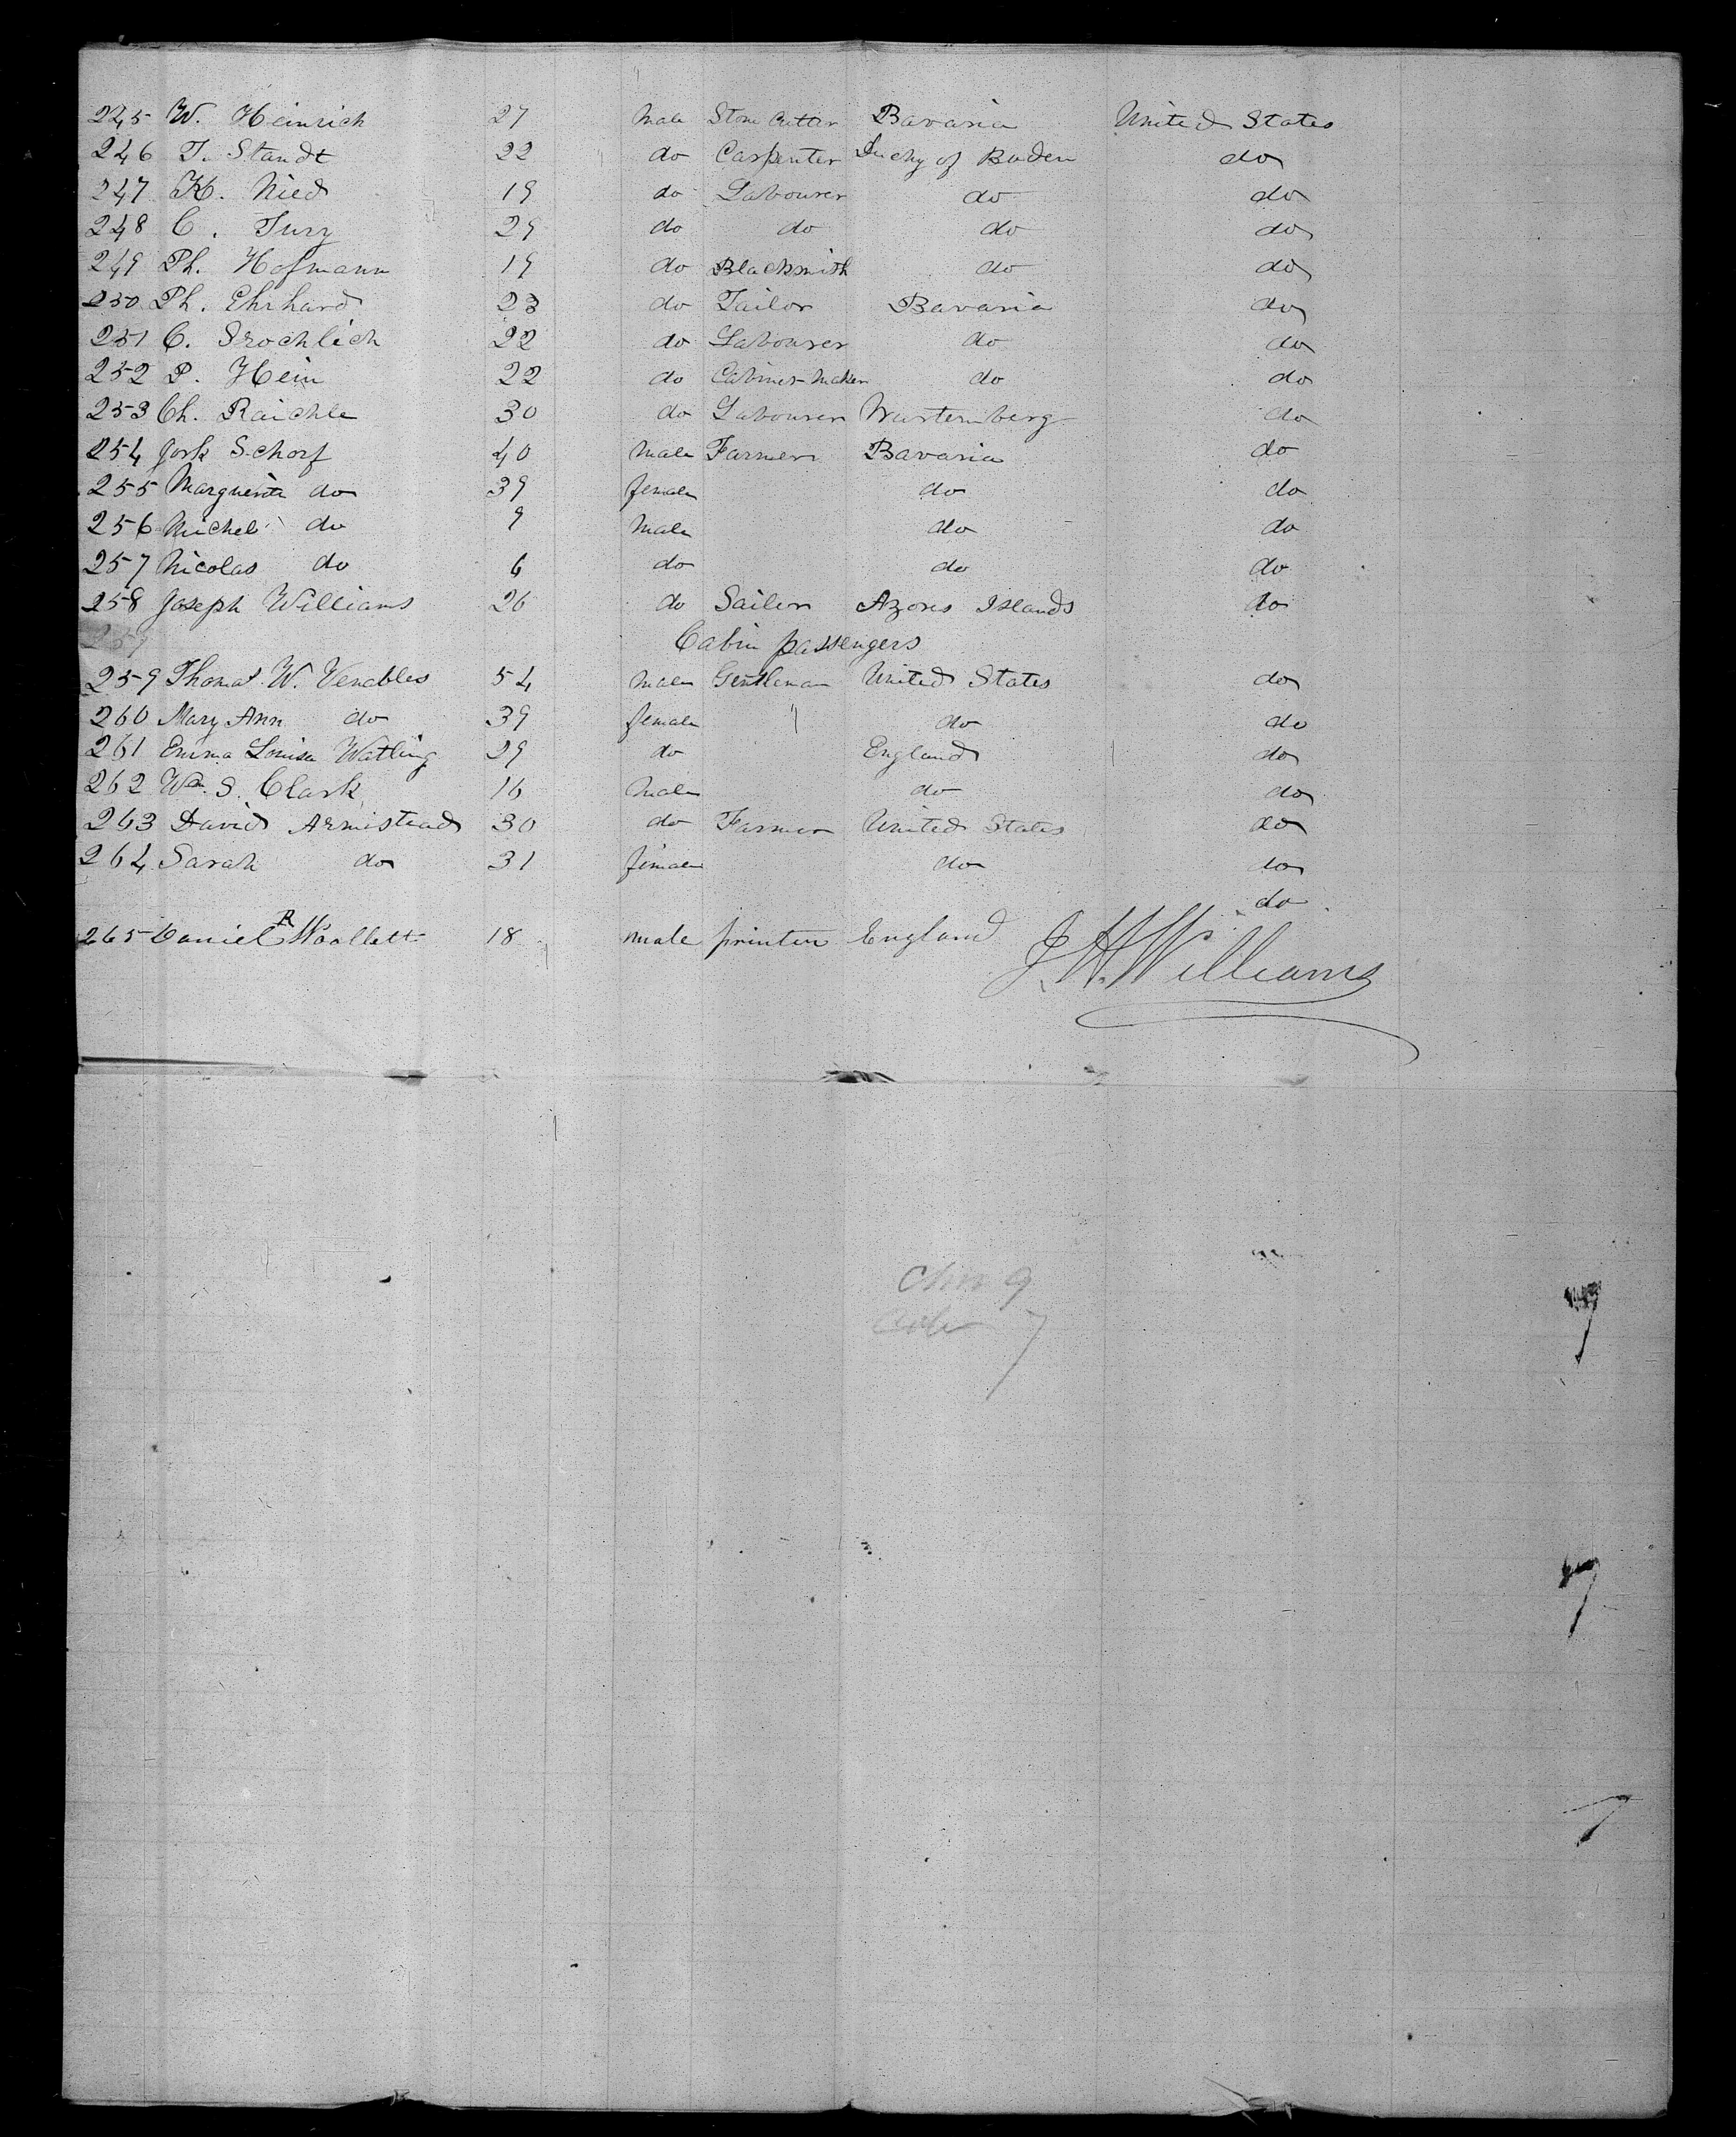 245 W. Heinrich 27 Male Stone Cutter Bavaria United States
246 T. Standt 22 do Carpenter Duchy of Baden do
247 K. Nied 19 do Labourer do do
248 C. Jury 29 do do do do
249 Ph. Hofmann 19 do Blacksmith do do
250 Ph. Ehrhard 23 do Tailor Bavaria do
251 C. Froehlich 22 do Labourer do do
252 P. Hein 22 do Cabinet Maker do do
253 Ch. Raichle 30 do Labourer Wurtemberg do
254 Jork Schorf 40 Male Farmer Bavaria do
255 Marguerite do 39 female do do
256 Michel do 9 Male do do
257 Nicolas do 6 do do do
258 Joseph Williams 26 do Sailor Azores Islands do
259 Cabin passengers
259 Thomas W. Venables 54 Male Gentleman United States do
260 Mary Ann do 39 female do do
261 Emma Louisa Watling 29 do England do
262 Wm. S. Clark 16 Male do do
263 David Armistead 30 do Farmer United States do
264 Sarah do 31 female do do
do
265 Daniel R Woollett 18 male printer England
J. H. Williams
9
7